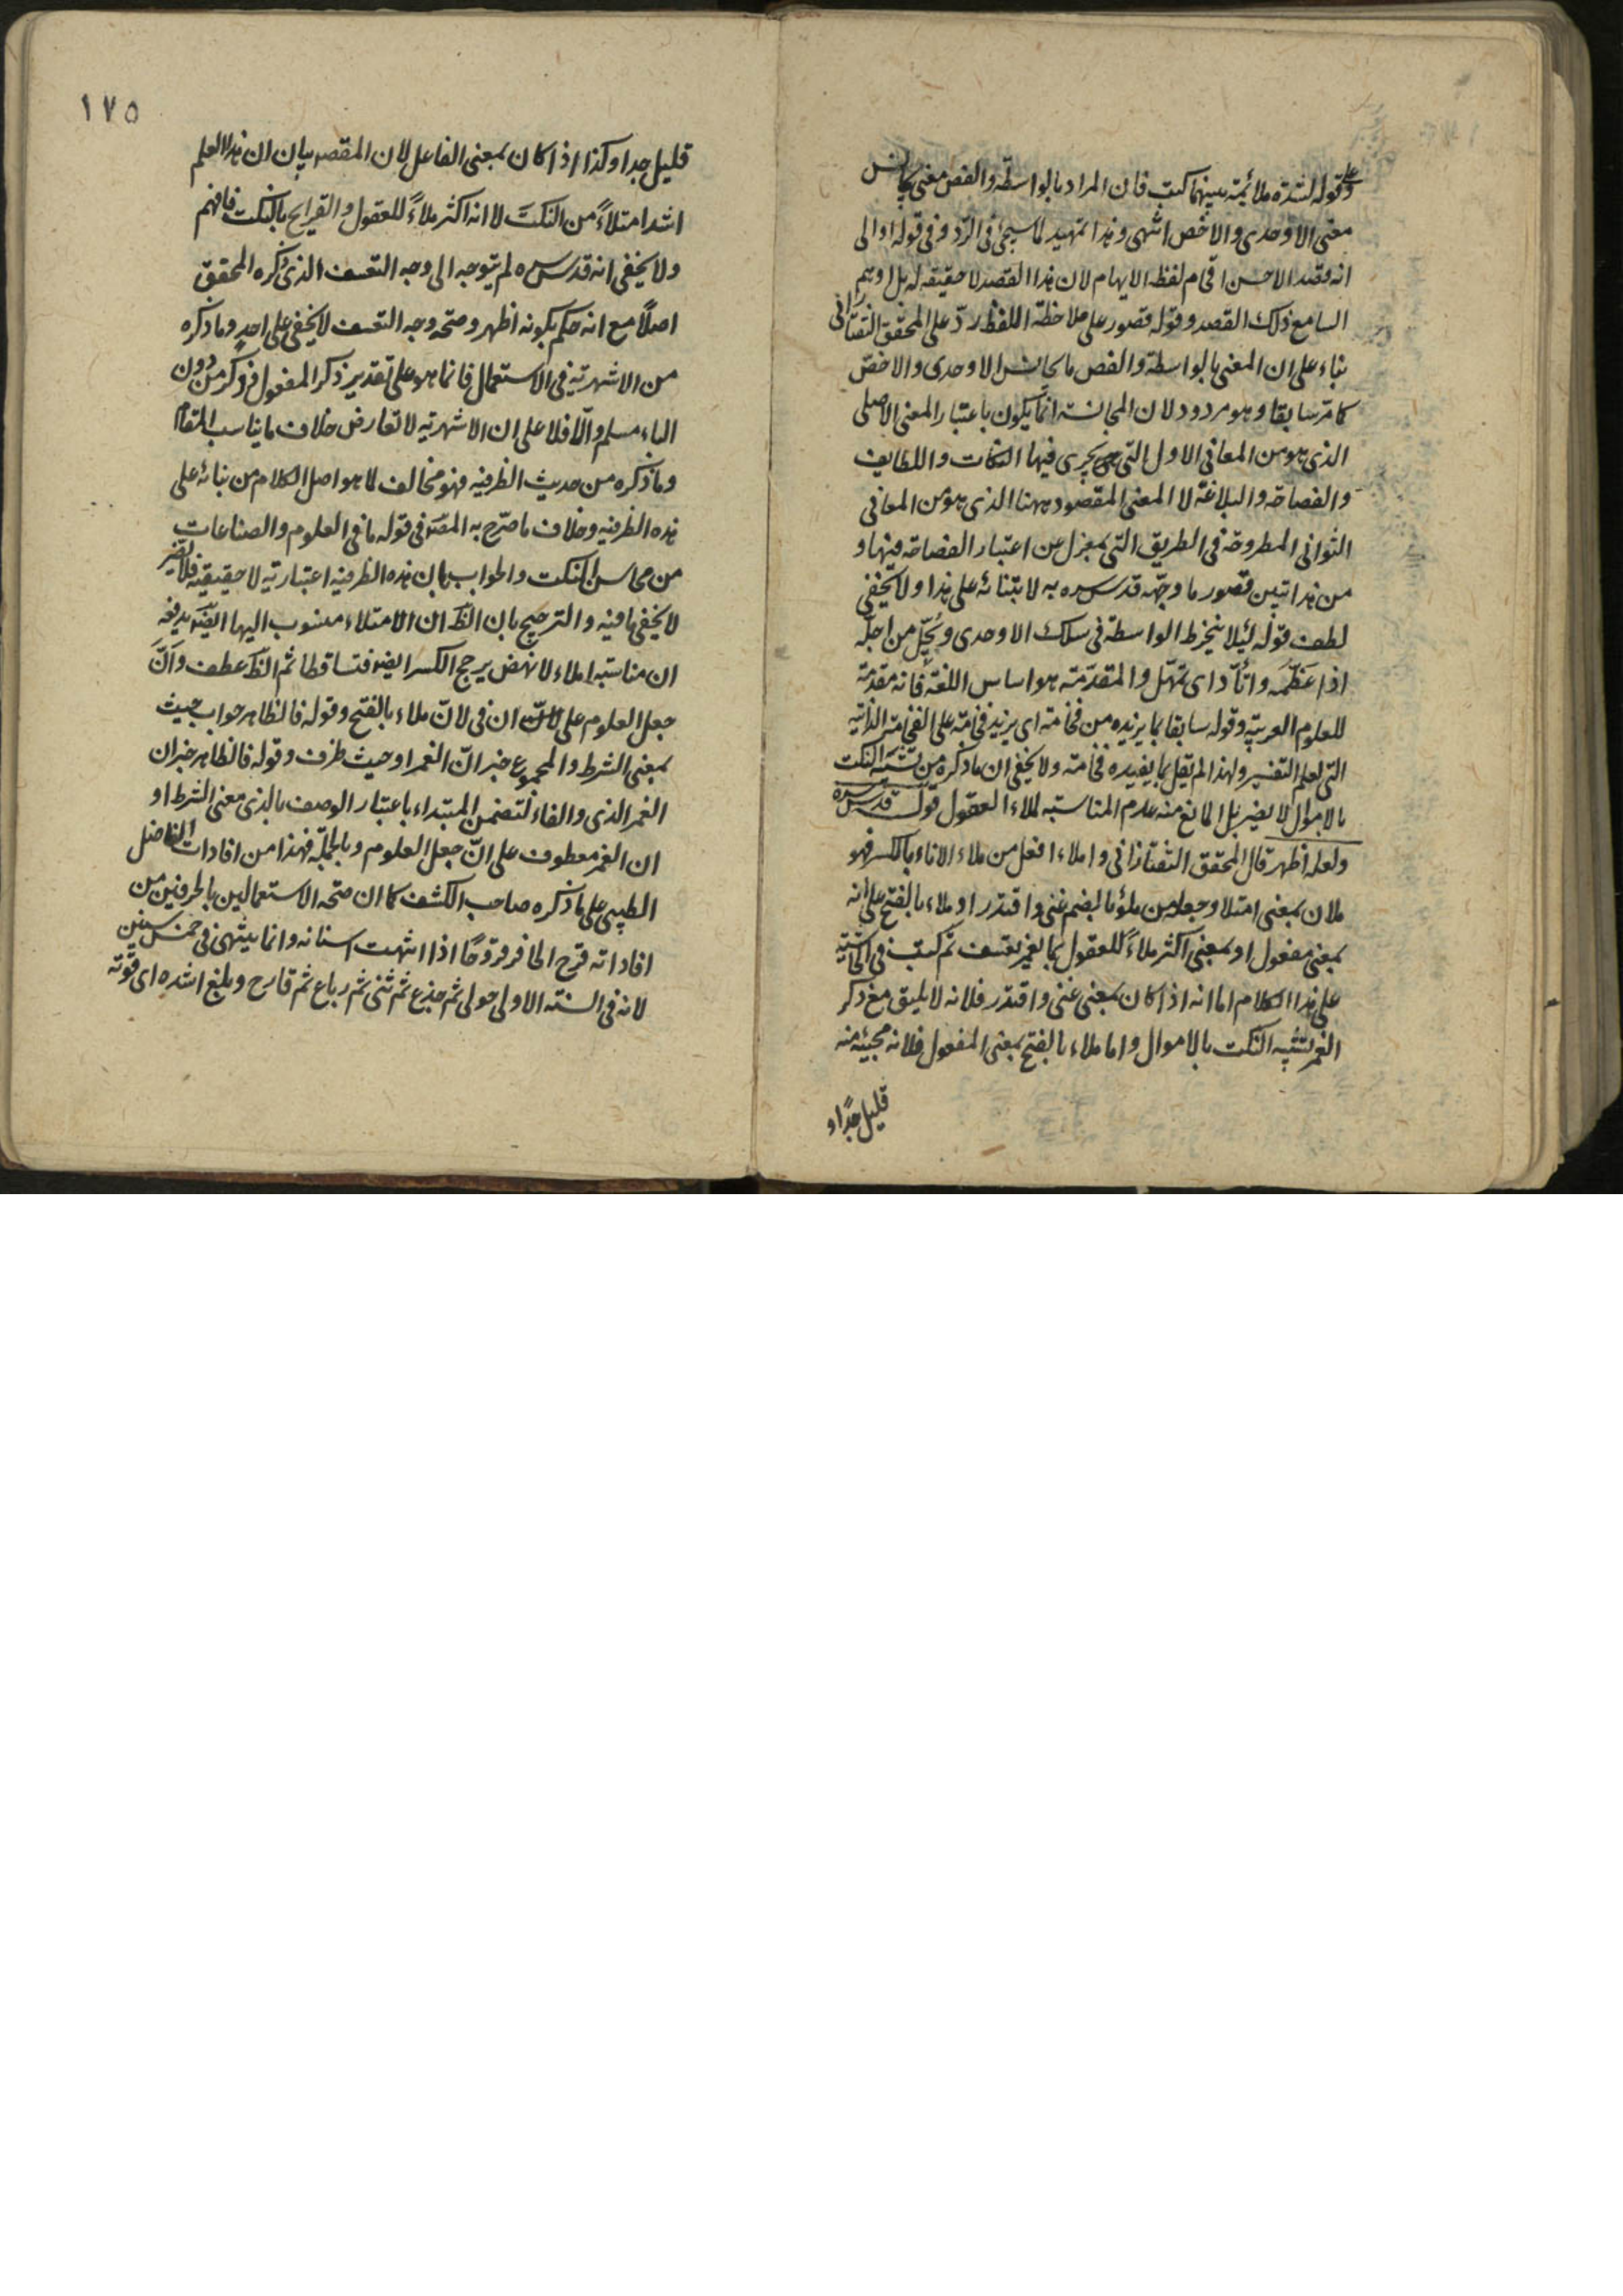 وعلى قوله لشدة ملائمة بينهما كتب فان المراد بالواسطة والفص معنى يجانس
معنى الاوحدى والاخص انتهى وهذا تمهيد لما سيجئ فى الرد وفى قوله او الى
انه قصد الاحسن اقحام لفظ الايهام لان هذا القصد لا حقيقة له بل اوهم
السامع ذلك القصد وقوله قصور على ملاحظة اللفظ ردّ على المحقق التفتازانى
بناء على ان المعنى بالواسطة والفص ما يجانس الاوحدى والاخصّ
كما مرّ سابقا وهو مردود لان المجانسة انما يكون باعتبار المعنى الاصلى
الذى هو من المعانى الاول التى يجرى فيها النكات واللطايف
والفصاحة والبلاغة لا المعنى المقصود ههنا الذى هو من المعانى
الثوانى المطروحة فى الطريق التى بمعزل عن اعتبار الفصاحة فيها و
من هذا تبين قصور ما وجّهه قدس سره به لابتنائه على هذا ولا يخفى
لطف قوله لئلا ينخرط الواسطة فى سلك الاوحدى ويجلّ من اجلّه
اذا عظّمه واتأد اى تمهّل والمقدمة هو اساس اللغة فانه مقدمة
للعلوم العربية وقوله سابقا بما يزيده من فخامة اى يزيد فخامة على الفخامة الذاتية
التى لعلم التفسير ولهذا لم يقل بما يفيده فخامة ولا يخفى ان ما ذكره من تشبيه النكت
بالاموال لا يضير بل المانع منه عدم المناسبة لملاء العقول قوله قدس سره
ولعله اظهر قال المحقق التفتازانى واملاء افعل من ملاء الاناء بالكسر فهو
ملان بمعنى امتلا وجعله من ملؤ بالضم غنى واقتدر او ملاء بالفتح على انه
بمعنى مفعول او بمعنى اكثر ملاءً للعقول بما يغمر تعسف ثم كتب فى الحاشية
على هذا الكلام اما انه اذا كان بمعنى غنى واقتدر فلانه لا يليق مع ذكر
الغمر تشبيه النكت بالاموال واما ملاء بالفتح بمعنى المفعول فلانه مجيئه منه
قليل جدًا و
١٧٥
قليل جدا وكذا اذا كان بمعنى الفاعل لان المقصد بيان ان هذا العلم
اشد امتلاءً من النكت لا انه اكثر ملاءً للعقول والقرايح بالنكت فافهم
ولا يخفى انه قدس سره لم يتوجه الى وجه التعسف الذى ذكره المحقق
اصلًا مع انه حكم بكونه اظهر وصحة وجه التعسف لا يخفى على احد وما ذكره
من الاشهرية فى الاستعمال فانما هو على تقدير ذكر المفعول فذكر من دون
الباء مسلم والّا فلا على ان الاشهرية لا تعارض خلاف ما يناسب المقام
وما ذكره من حديث الظرفية فهو مخالف لما هو اصل الكلام من بنائه على
هذه الظرفية وخلاف ما صرّح به المصنف فى قوله ما فى العلوم والصناعات
من محاسن النكت والجواب بان هذه الظرفية اعتبارية لا حقيقية فلا يضير
لا يخفى ما فيه والترجيح بان الظ ان الامتلاء منسوب اليها ايضا يدفعه
ان مناسبة املاء لانهض يرجح الكسر ايضا فتساقطا ثم الظ عطف وانّ
جعل العلوم على ان فى لانّ ملاء بالفتح وقوله فالظاهر جواب حيث
بمعنى الشرط والمجموع خبر انّ الغمر او حيث ظرف وقوله فالظاهر خبر ان
الغمر الذى والفاء لتضمن المبتداء باعتبار الوصف بالذى معنى الشرط او
ان الغمر معطوف على انّ جعل العلوم وبالجملة فهذا من افادات الفاضل
الطيبى على ما ذكره صاحب الكشف كما ان صحة الاستعمالين بالحرفين من
افاداته قرح الحافر قروحًا اذا انتهت اسنانه وانما ينتهى فى خمس سنين
لانه فى السنة الاولى حولى ثم جذع ثم ثنى ثم رباع ثم قارح وبلغ اشده اى قوته